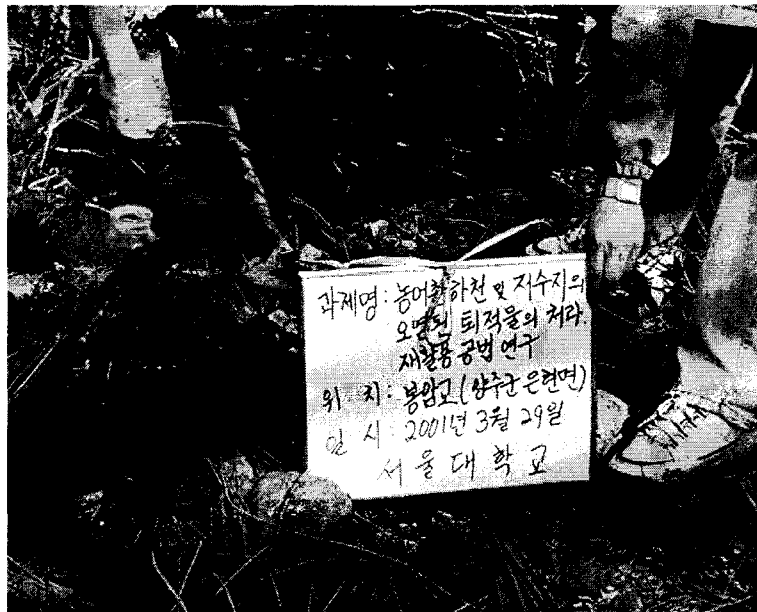 과제명: 농어촌하천 및 저수지의
오염된 퇴적물의 처리.
재활용 공법 연구
위 치: 봉암교 (양주군 은현면)
일 시: 2001년 3월 29일
서울대학교